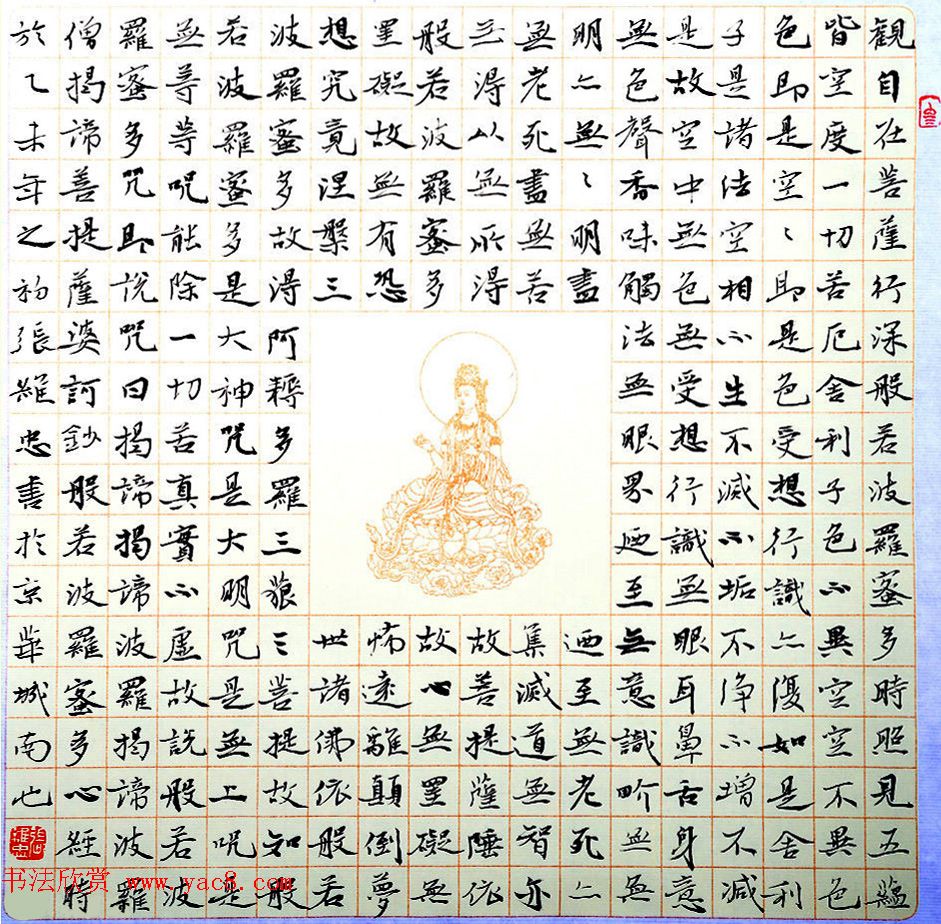 觀自在菩薩行深般若波羅蜜多時照見五蘊
皆空度一切苦厄舍利子色不異空空不異色
色即是空〻即是色受想行識亦復如是舍利
子是諸法空相不生不滅不垢不淨不增不減
是故空中無色無受想行識無眼耳鼻舌身意
無色聲香味觸法無眼界迺至無意識畍無無
明亦無〻明盡迺至無老死亦
無老死盡無苦集滅道無智亦
無得以無所得故菩提薩埵依
般若波羅蜜多故心無罣礙無
罣礙故無有恐怖遠離顛倒夢
想究竟涅槃三世諸佛依般若
波羅蜜多故得阿耨多羅三藐三菩提故知般
若波羅蜜多是大神咒是大明咒是無上咒是
無等等咒能除一切苦真實不虛故說般若波
羅蜜多咒即說咒曰揭諦揭諦波羅揭諦波羅
僧揭諦菩提薩婆訶鈔般若波羅蜜多心經時
於乙未年之初張維忠書於京華城南也
书法欣赏 www.yac8.com